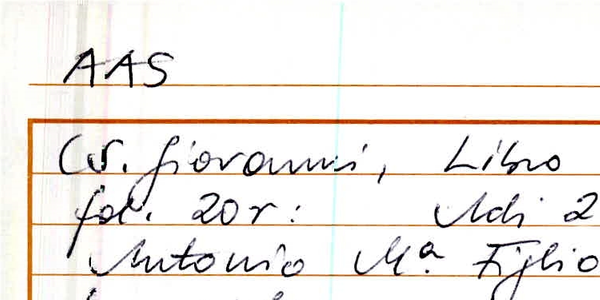 AAS
(S. Giovanni, Libro
fol. 20r: Adi 2
Antonio Mª Figlio